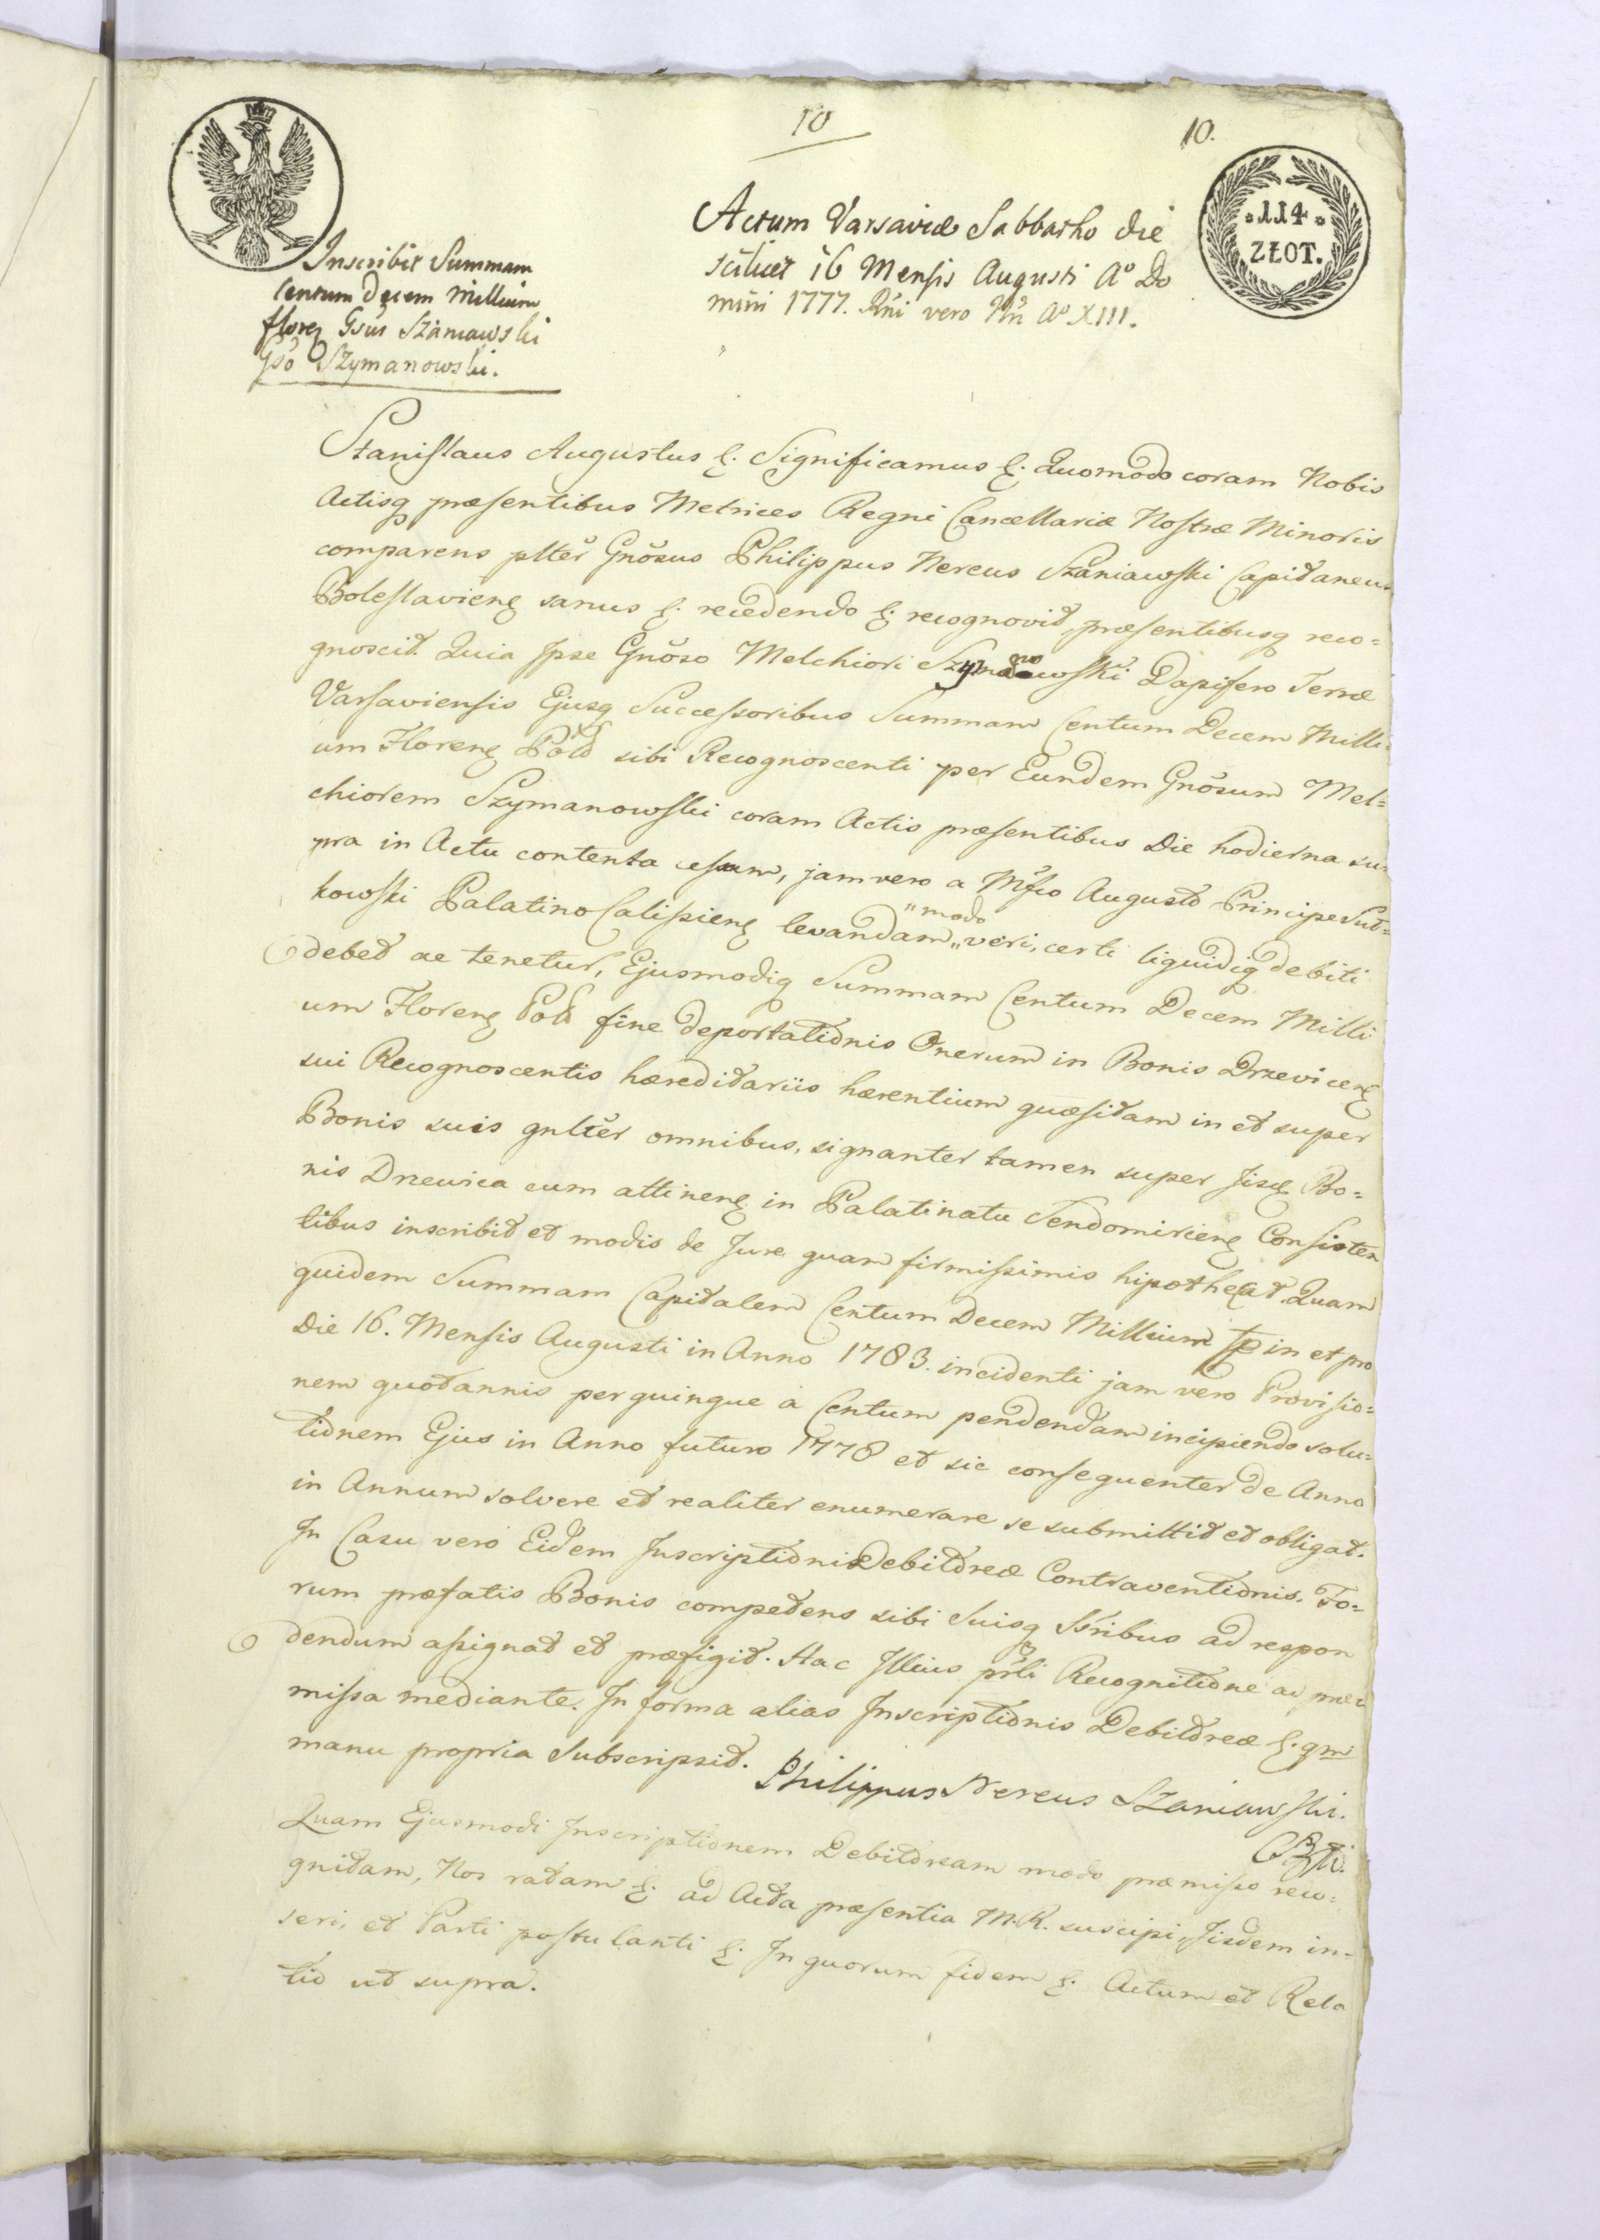 10
10.
114
ZŁOT.
Actum Varsaviæ Sabbatho die
scilicet 16 Mensis Augusti Aº Do
mini 1777. Rñi vero Nři Aº XIII.
Inscribit Summam
Centum Decem Millium
floreꝫ Gsus Szaniawski
Gso Szymanowski.
Stanislaus Augustus &. Significamus &. Quomodo coram Nobis
Actisq præsentibus Metrices Regni Cancellariæ Nostræ Minoris
comparens plter Gnosus Philippus Nereus Szaniawski Capitaneus
Boleslavienꝫ sanus &. recedendo &. recognovit, præsentibusq reco=
gnoscit Quia Ipse Gnoso Melchiori Szymanowski Dapifero Terræ
Varsaviensis Ejusq Successoribus Summam Centum Decem Milli=
um Florenꝫ Pold sibi Recognoscenti per Eundem Gnosum Mel=
chiorem Szymanowski coram Actis præsentibus Die hodierna su=
pra in Actu contenta cessam, jam vero a Mfco Augusto Principe Sul=
kowski Palatino Calissienꝫ levandam „modo„ veri, certi liquidiq debiti
debet ac tenetur, Ejusmodiq Summam Centum Decem Milli
um Florenꝫ Pold fine deportationis Onerum in Bonis Drzevicenꝫ
sui Recognoscentis hæreditariis hærentium quæsitam in et super
Bonis suis gnlter omnibus, signanter tamen super Iisꝫ Bo=
nis Drzewica cum attinenꝫ in Palatinatu Sendomirienꝫ Consisten
tibus inscribit et modis de Jure quam firmissimis hipothecat. Quam
quidem Summam Capitalem Centum Decem Millium fp in et pro
Die 16. Mensis Augusti in Anno 1783. incidenti jam vero Provisio=
nem quotannis per quinque à Centum pendendam incipiendo solu=
tionem Ejus in Anno futuro 1778 et sic consequenter de Anno
in Annum solvere et realiter enumerare se submittit et obligat.
In Casu vero Eidem Inscriptioni Debitoreæ Contraventionis, Fo=
rum præfatis Bonis competens sibi Suisq Ssribus ad respon
dendum assignat et præfigit. Hac Illius prli Recognitione ac præ
missa mediante. In forma alias Inscriptionis Debitoreæ &. qm
manu propria Subscripsit. Philippus Nereus Szaniawski.
Quam Ejusmodi Inscriptionem Debitoream modo præmisso reco=
gnitam, Nos ratam &. ad Acta præsentia M.R. suscipi, Iisdem in=
seri, et Parti postulanti &. In quorum fidem &. Actum et Rela
tio ut supra.